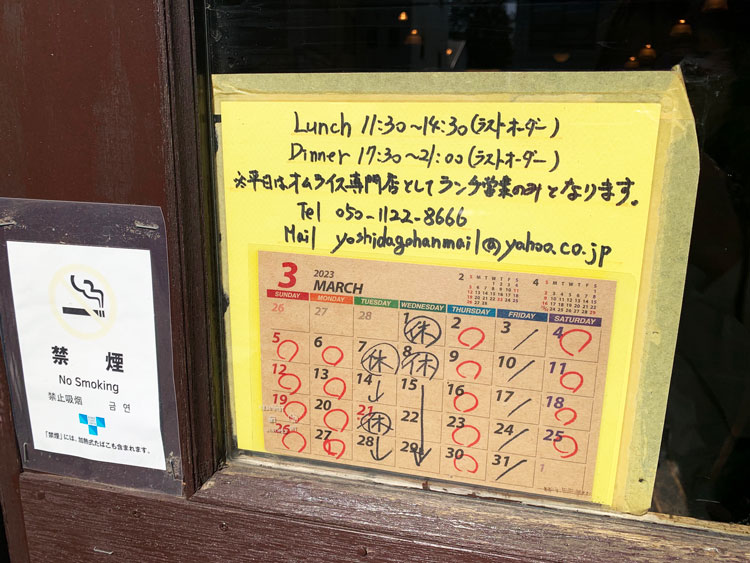 Lunch 11:30〜14:30(ラストオーダー)
Dinner 17:30〜21:00(ラストオーダー)
※平日はオムライス専門店としてランチ営業のみとなります。
Tel 050-1122-8666
Mail yoshidagohanmail@yahoo.co.jp
3 2023 MARCH
2 4
SUNDAY MONDAY TUESDAY WEDNESDAY THURSDAY FRIDAY SATURDAY
26 27 28 1 休 2 3 4
5 6 7 休 8 休 9 10 11
12 13 14 15 16 17 18
19 20 21 休 22 23 24 25
26 27 28 29 30 31 1
禁煙
No Smoking
禁止吸烟 금연
「禁煙」には、加熱式たばこも含まれます。